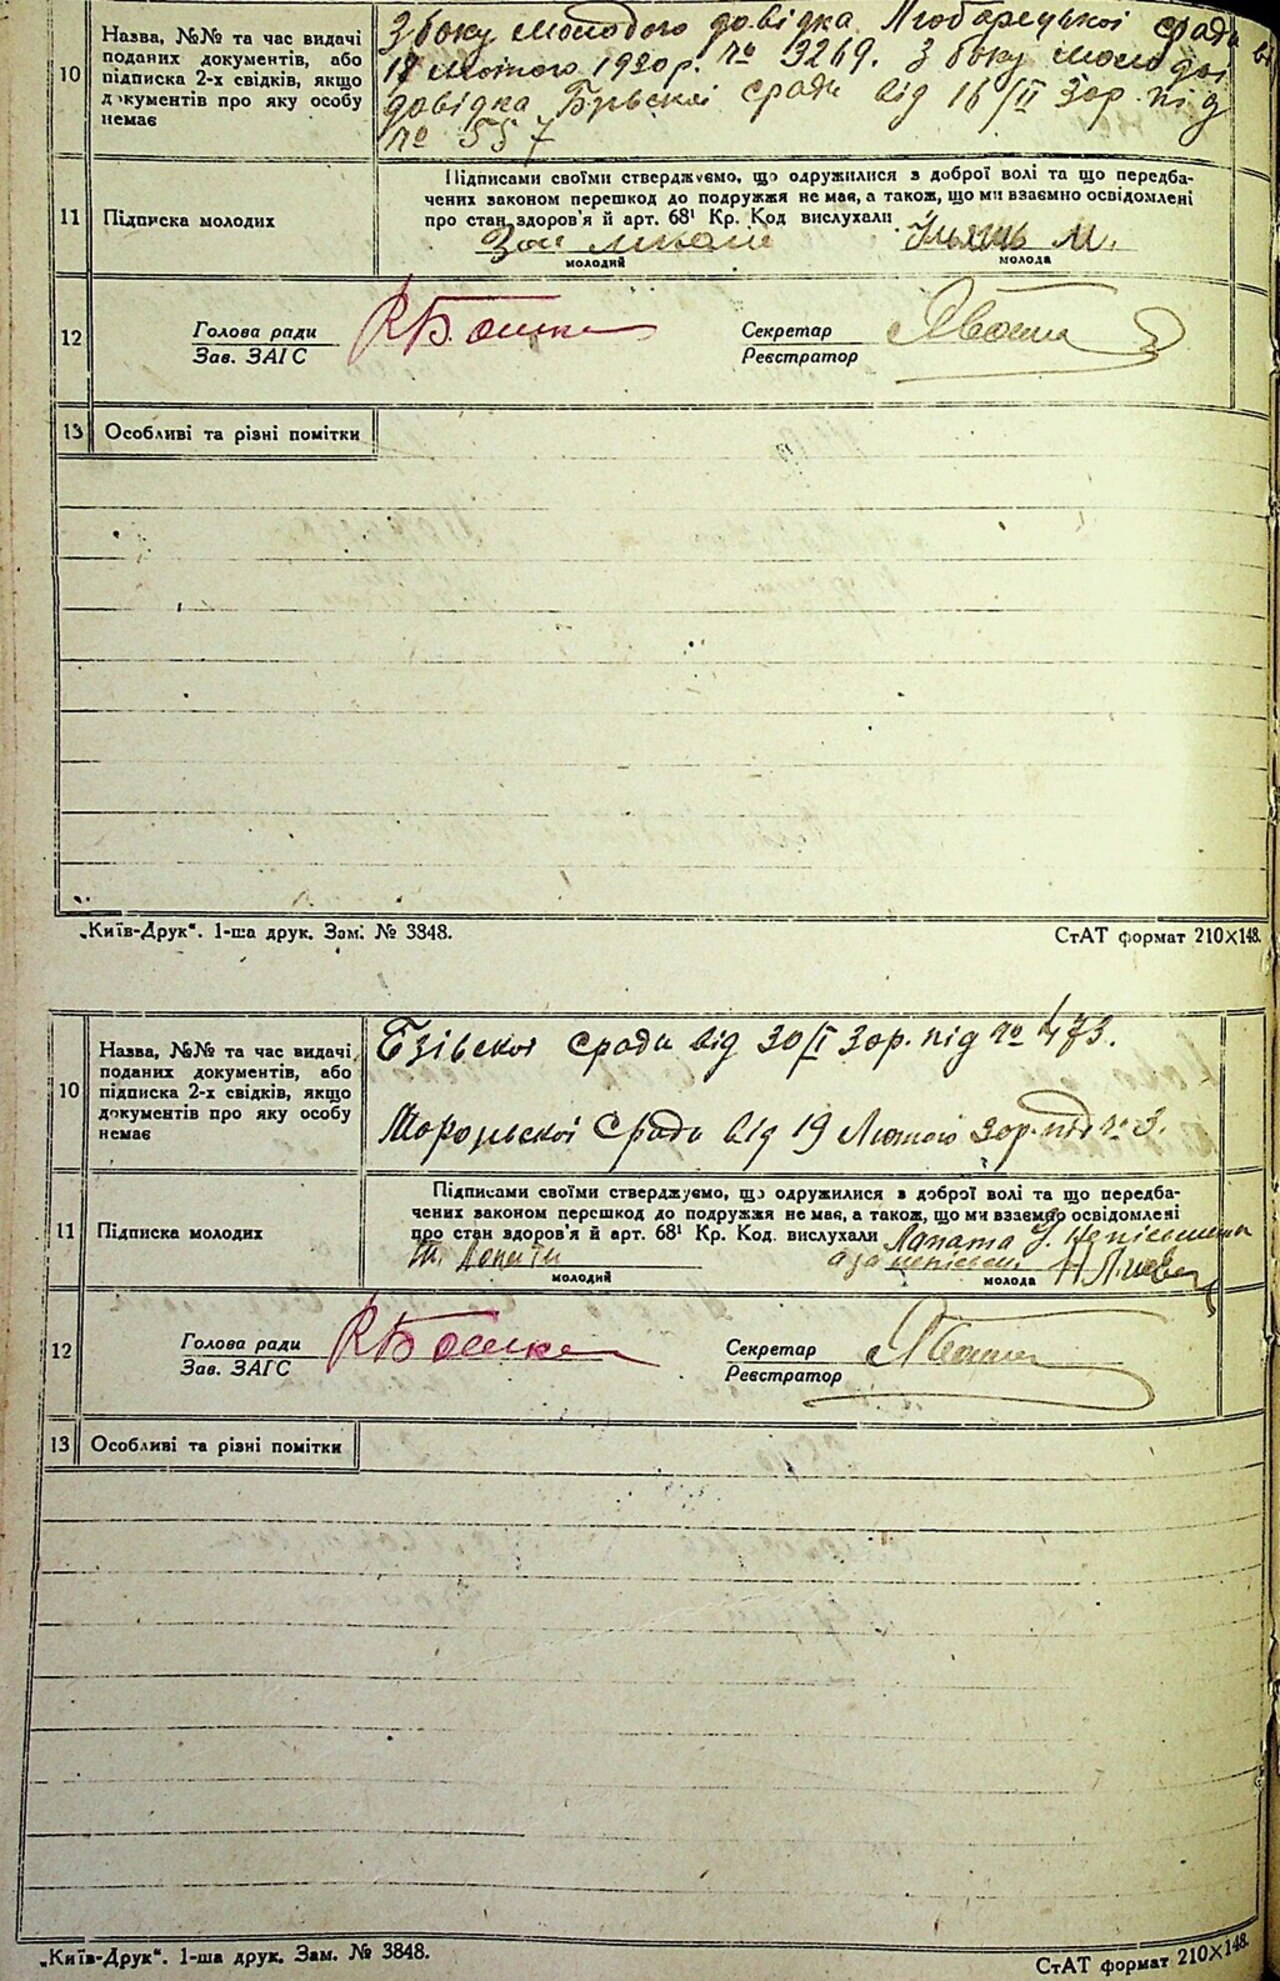 10
Назва, №№ та час видачі
поданих документів, або
підписка 2-х свідків, якщо
документів про яку особу
немає
З боку молодого довідка Любарецької сради
18 лютого 1930 р. № 3269. З боку молодої
довідка сради від 16/II 30р. під
№ 557
11
Підписка молодих
Підписами своїми стверджуємо, що одружилися з доброї волі та що передба-
чених законом перешкод до подружжя не має, а також, що ми взаємно освідомлені
про стан здоров'я й арт. 68¹ Кр. Код вислухали
М.
молодий
молода
12
Голова ради
Зав. ЗАГС
Секретар
Реєстратор
13
Особливі та різні помітки
„Київ-Друк“. 1-ша друк. Зам. № 3848.
СтАТ формат 210×148.
10
Назва, №№ та час видачі
поданих документів, або
підписка 2-х свідків, якщо
документів про яку особу
немає
сради від 30/I 30р. під № 473.
сради від 19 Лютого 30р. під № 3.
11
Підписка молодих
Підписами своїми стверджуємо, що одружилися з доброї волі та що передба-
чених законом перешкод до подружжя не має, а також, що ми взаємно освідомлені
про стан здоров'я й арт. 68¹ Кр. Код. вислухали Лапата
молодий
молода
12
Голова ради
Зав. ЗАГС
Секретар
Реєстратор
13
Особливі та різні помітки
„Київ-Друк“. 1-ша друк. Зам. № 3848.
СтАТ формат 210×148.